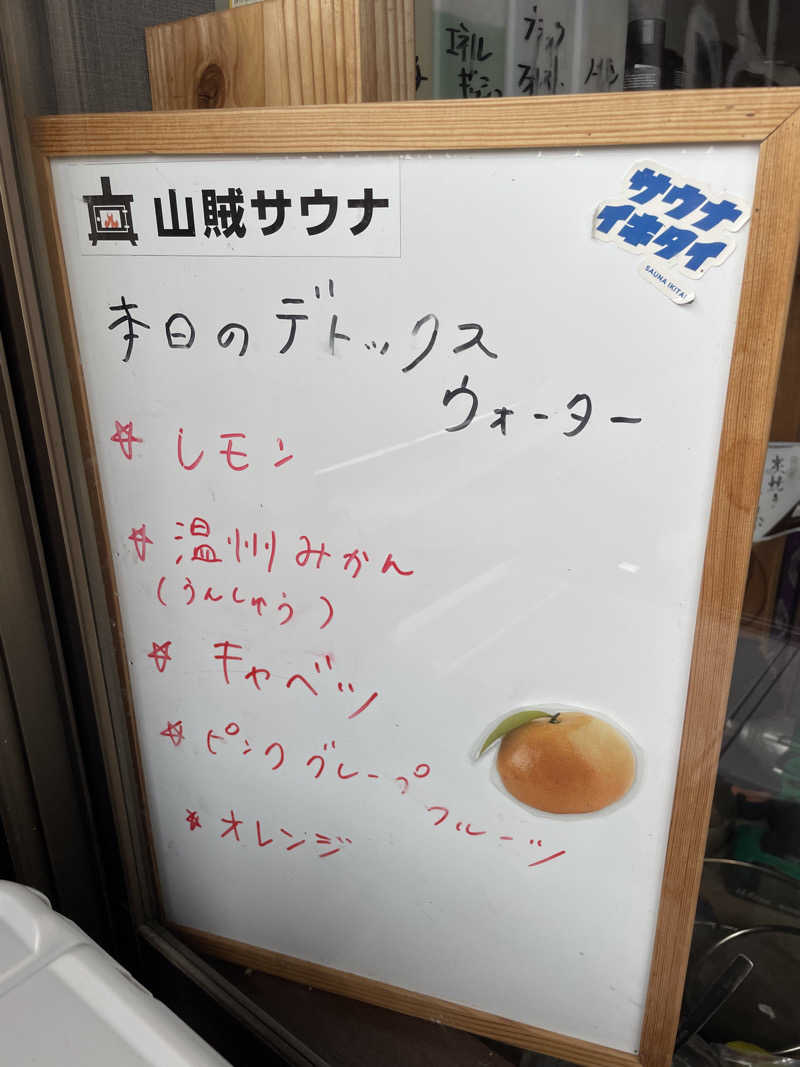 エネル
ギッシュ
山賊サウナ
サウナ
イキタイ
SAUNA IKITAI
本日のデトックス
ウォーター
☆ レモン
☆ 温州みかん
(うんしゅう)
☆ キャベツ
☆ ピンクグレープ
フルーツ
☆ オレンジ